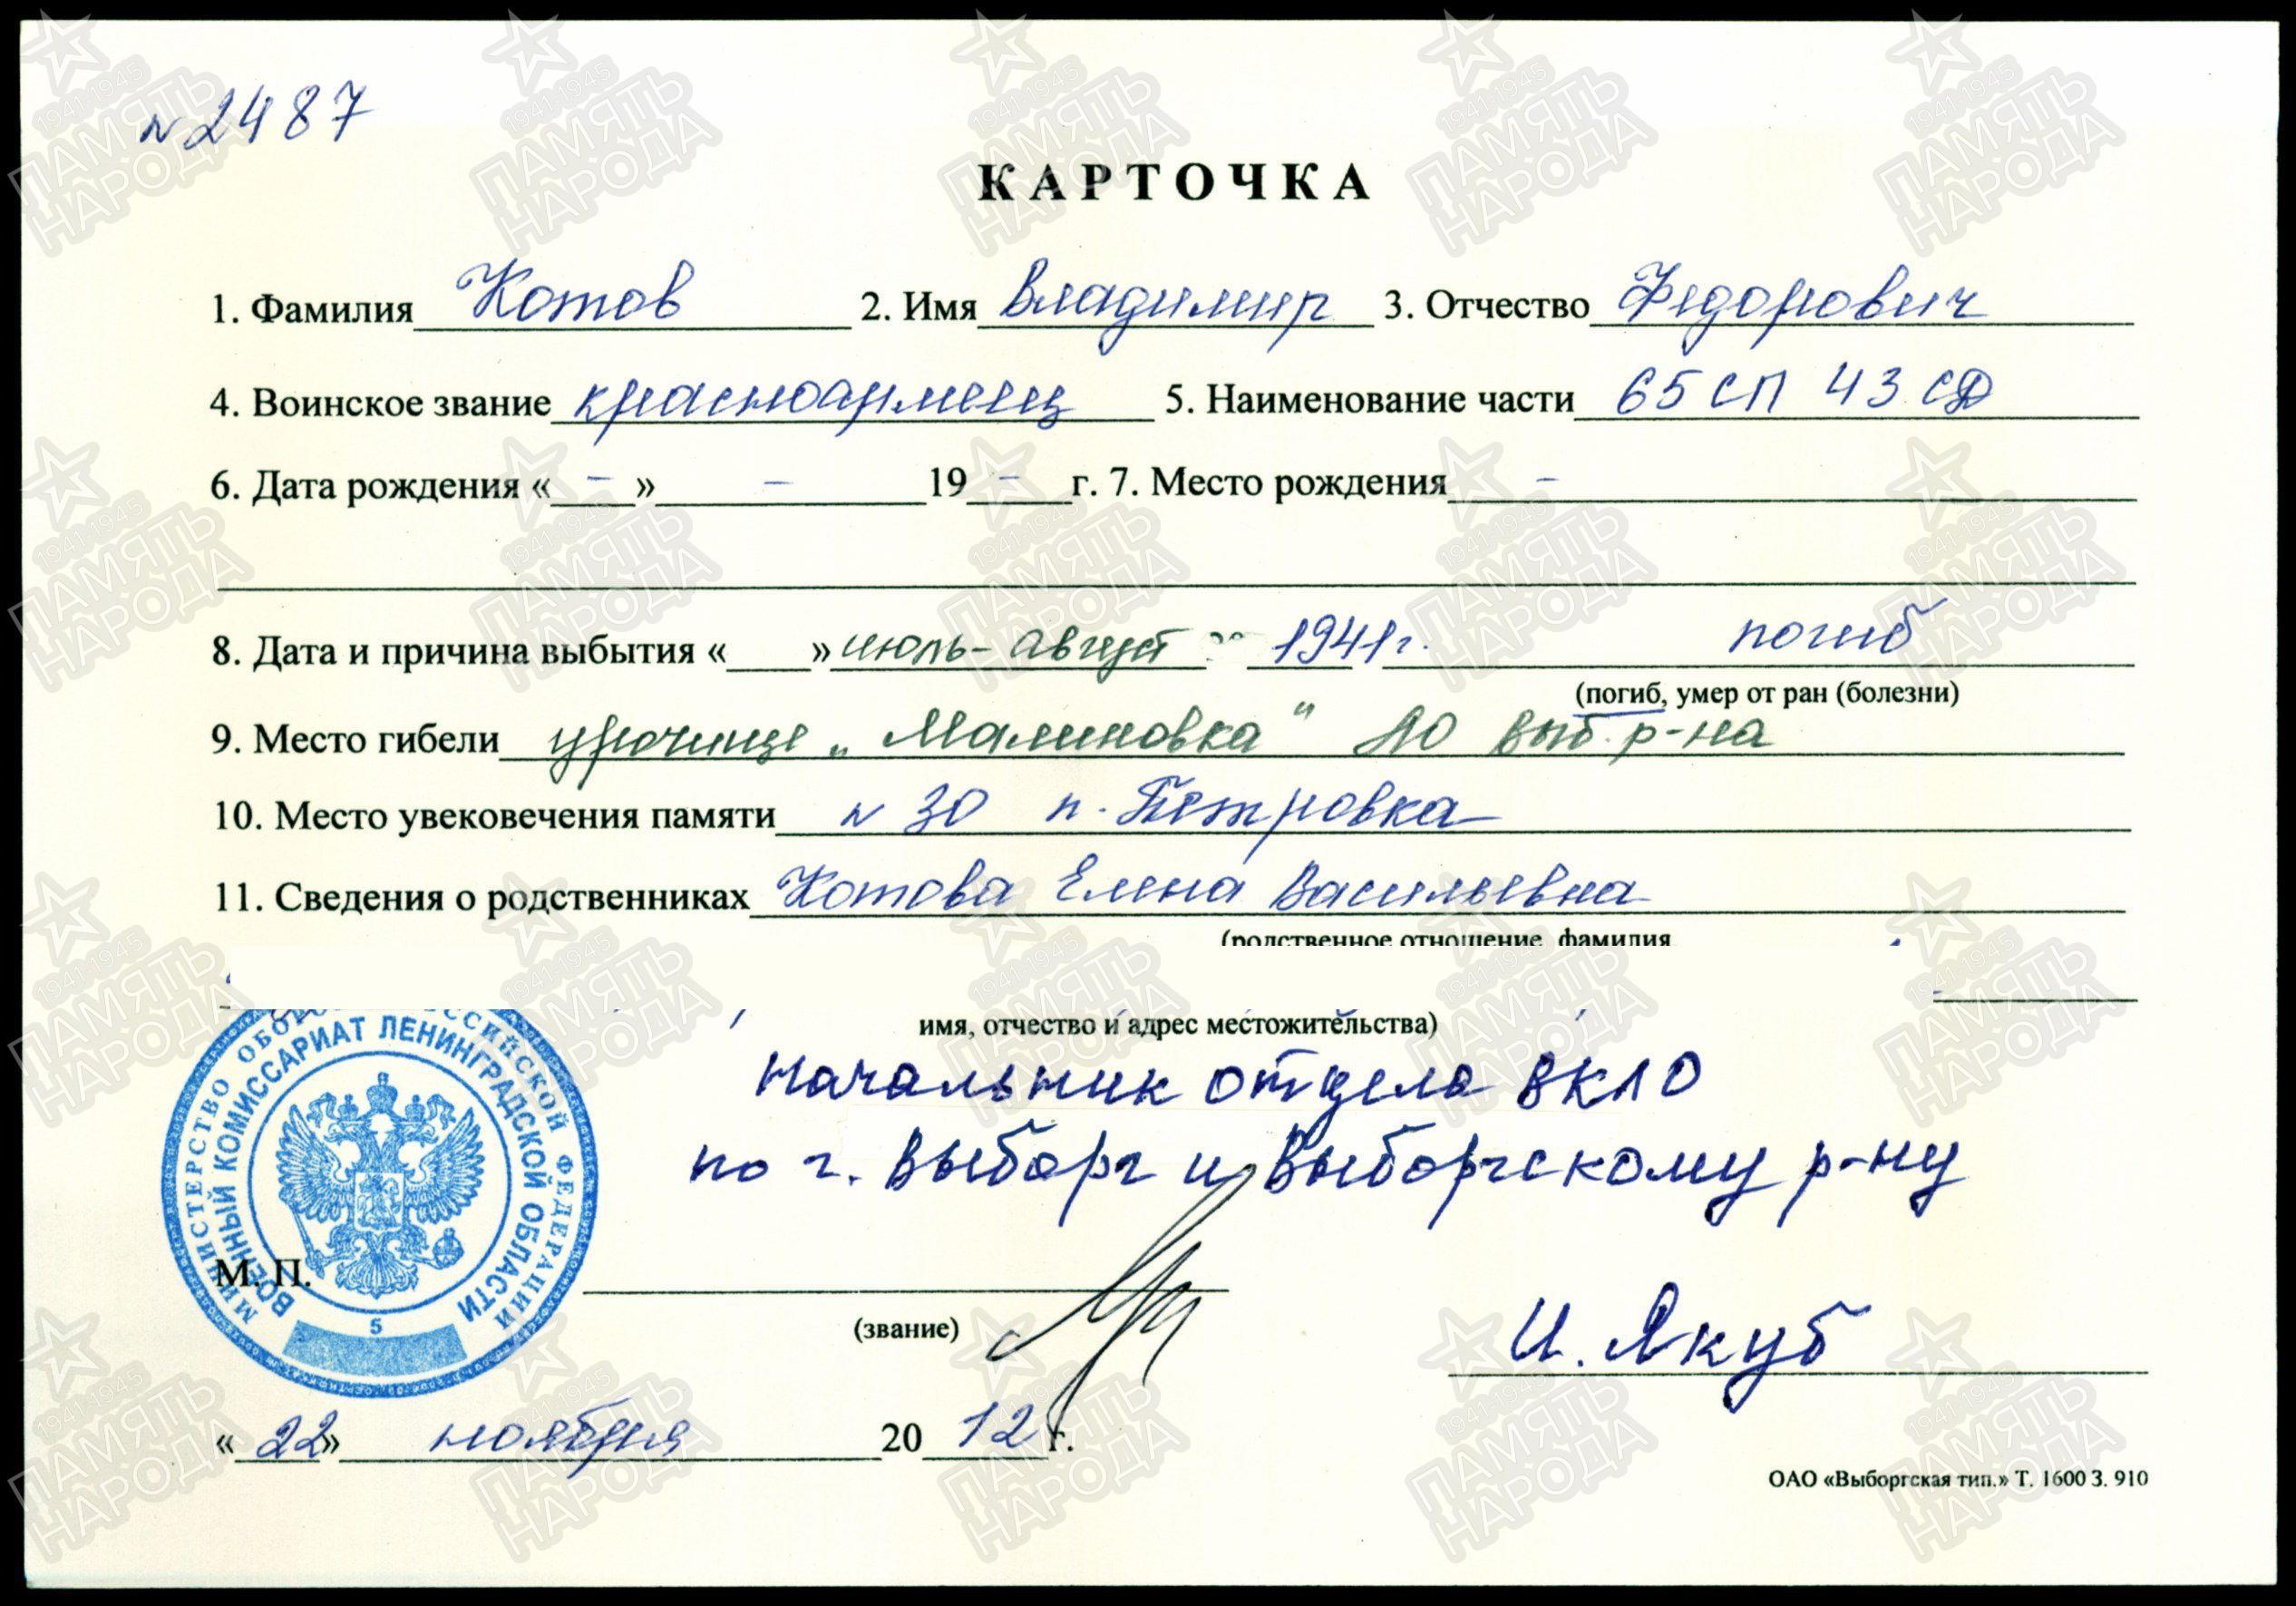 N 2487
КАРТОЧКА
1. Фамилия Котов 2. Имя Владимир 3. Отчество Федорович
4. Воинское звание красноармеец 5. Наименование части 65 СП 43 СД
6. Дата рождения « - » - 19 - г. 7. Место рождения -
8. Дата и причина выбытия « » июль-август 1941г. погиб
(погиб, умер от ран (болезни)
9. Место гибели урочище „Малиновка" ЛО Выб. р-на
10. Место увековечения памяти N 30 п. Петровка
11. Сведения о родственниках Котова Елена Васильевна
(родственное отношение, фамилия
имя, отчество и адрес местожительства)
Начальник отдела ВКЛО
по г. Выборг и Выборгскому р-ну
МИНИСТЕРСТВО ОБОРОНЫ РОССИЙСКОЙ ФЕДЕРАЦИИ
ВОЕННЫЙ КОМИССАРИАТ ЛЕНИНГРАДСКОЙ ОБЛАСТИ
5
М. П.
(звание)
И. Якуб
« 22 » ноября 20 12 г.
ОАО «Выборгская тип.» Т. 1600 З. 910
1941-1945
ПАМЯТЬ
НАРОДА